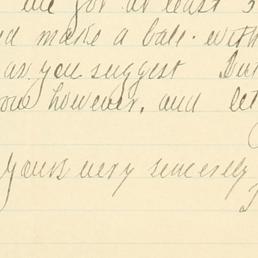 me for at least 3
nd make a bale. with
as you suggest But
however, and let
Yours very sincerely